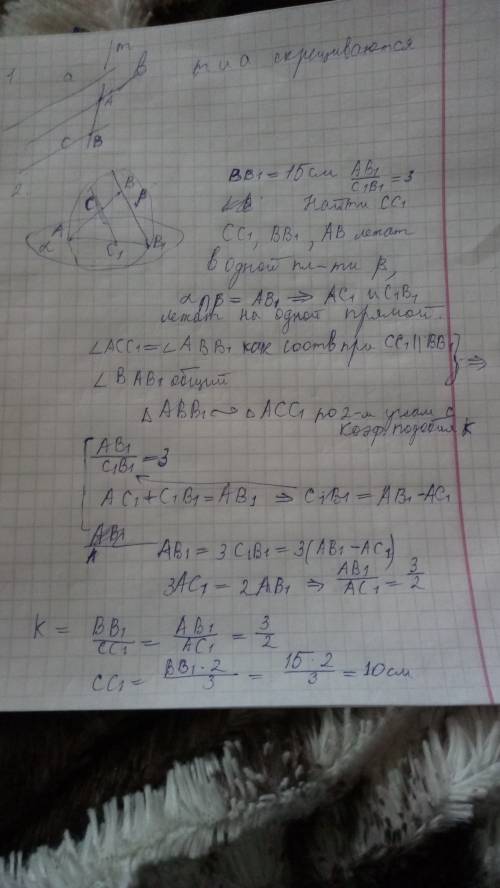 1 a m b m и a скрещиваются
A
C B
2
BB₁ = 15 см AB₁/C₁B₁ = 3
Найти CC₁
C B β
A α C₁ B₁
CC₁, BB₁, AB лежат
в одной пл-ти β,
α∩β = AB₁ ⇒ AC₁ и C₁B₁
лежат на одной прямой.
∠ACC₁ = ∠ABB₁ как соотв при CC₁ || BB₁ } ⇒
∠BAB₁ общий
△ABB₁ ∾ △ACC₁ по 2-м углам с
коэф. подобия K
AB₁/C₁B₁ = 3
AC₁ + C₁B₁ = AB₁ ⇒ C₁B₁ = AB₁ - AC₁
AB₁ = 3C₁B₁ = 3(AB₁ - AC₁)
3AC₁ = 2AB₁ ⇒ AB₁/AC₁ = 3/2
K = BB₁/CC₁ = AB₁/AC₁ = 3/2
CC₁ = BB₁·2/3 = 15·2/3 = 10 см